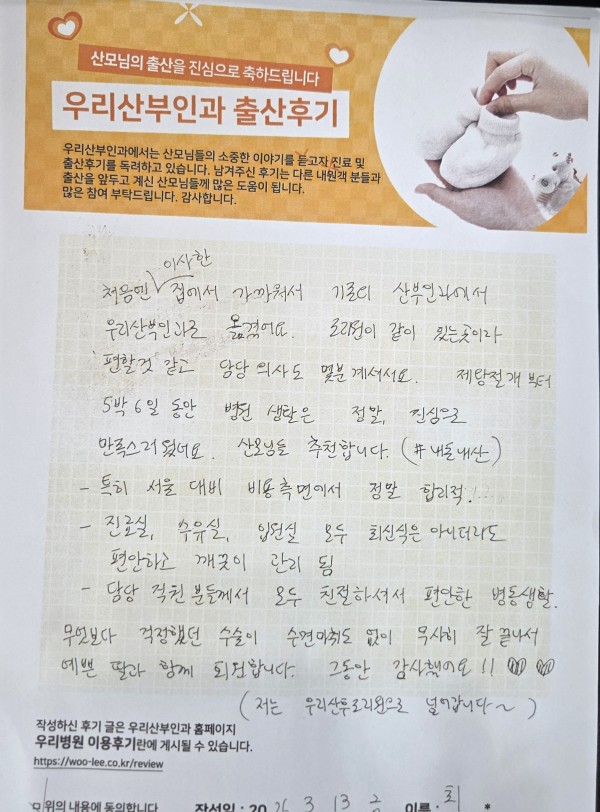 산모님의 출산을 진심으로 축하드립니다
우리산부인과 출산후기
우리산부인과에서는 산모님들의 소중한 이야기를 듣고자 진료 및
출산후기를 독려하고 있습니다. 남겨주신 후기는 다른 내원객 분들과
출산을 앞두고 계신 산모님들께 많은 도움이 됩니다.
많은 참여 부탁드립니다. 감사합니다.
이사한
처음엔 집에서 가까워서 기존의 산부인과에서
우리산부인과로 옮겼어요. 조리원이 같이 있는곳이라
편할것 같고 담당 의사도 몇분 계셔서요. 제왕절개 부터
5박 6일 동안 병원 생활은 정말, 진심으로
만족스러웠어요. 산모님들 추천합니다. (#내돈내산)
- 특히 서울 대비 비용측면에서 정말 합리적!...
- 진료실, 수유실, 입원실 모두 최신식은 아니더라도
편안하고 깨끗이 관리 됨
- 담당 직원 분들께서 모두 친절하셔서 편안한 병동생활.
무엇보다 걱정했던 수술이 수면마취도 없이 무사히 잘 끝나서
예쁜 딸과 함께 퇴원합니다. 그동안 감사했어요!!
(저는 우리산후조리원으로 넘어갑니다~)
작성하신 후기 글은 우리산부인과 홈페이지
우리병원 이용후기란에 게시될 수 있습니다.
https://woo-lee.co.kr/review
위의 내용에 동의합니다 작성일 : 20 26. 3. 13 금 이름 : 최 *